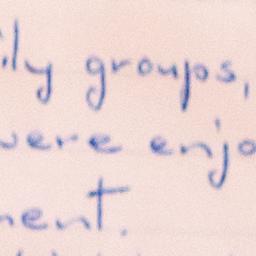 ily groups,
were enjo
ment.